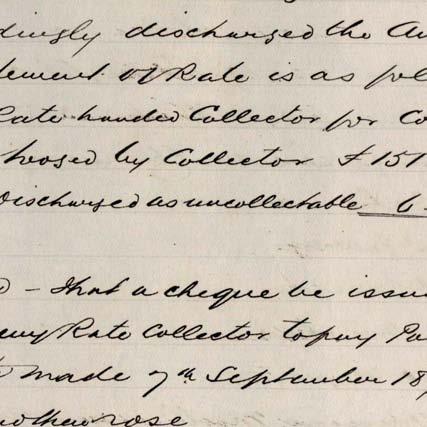 dingly discharged the Au
tement of Rate is as fol
Rate handed Collector for Co
hoosed by Collector £151
Discharged as uncollectable 6
– That a cheque be issu
Rate Collector to pay Pa
made 7th September 18